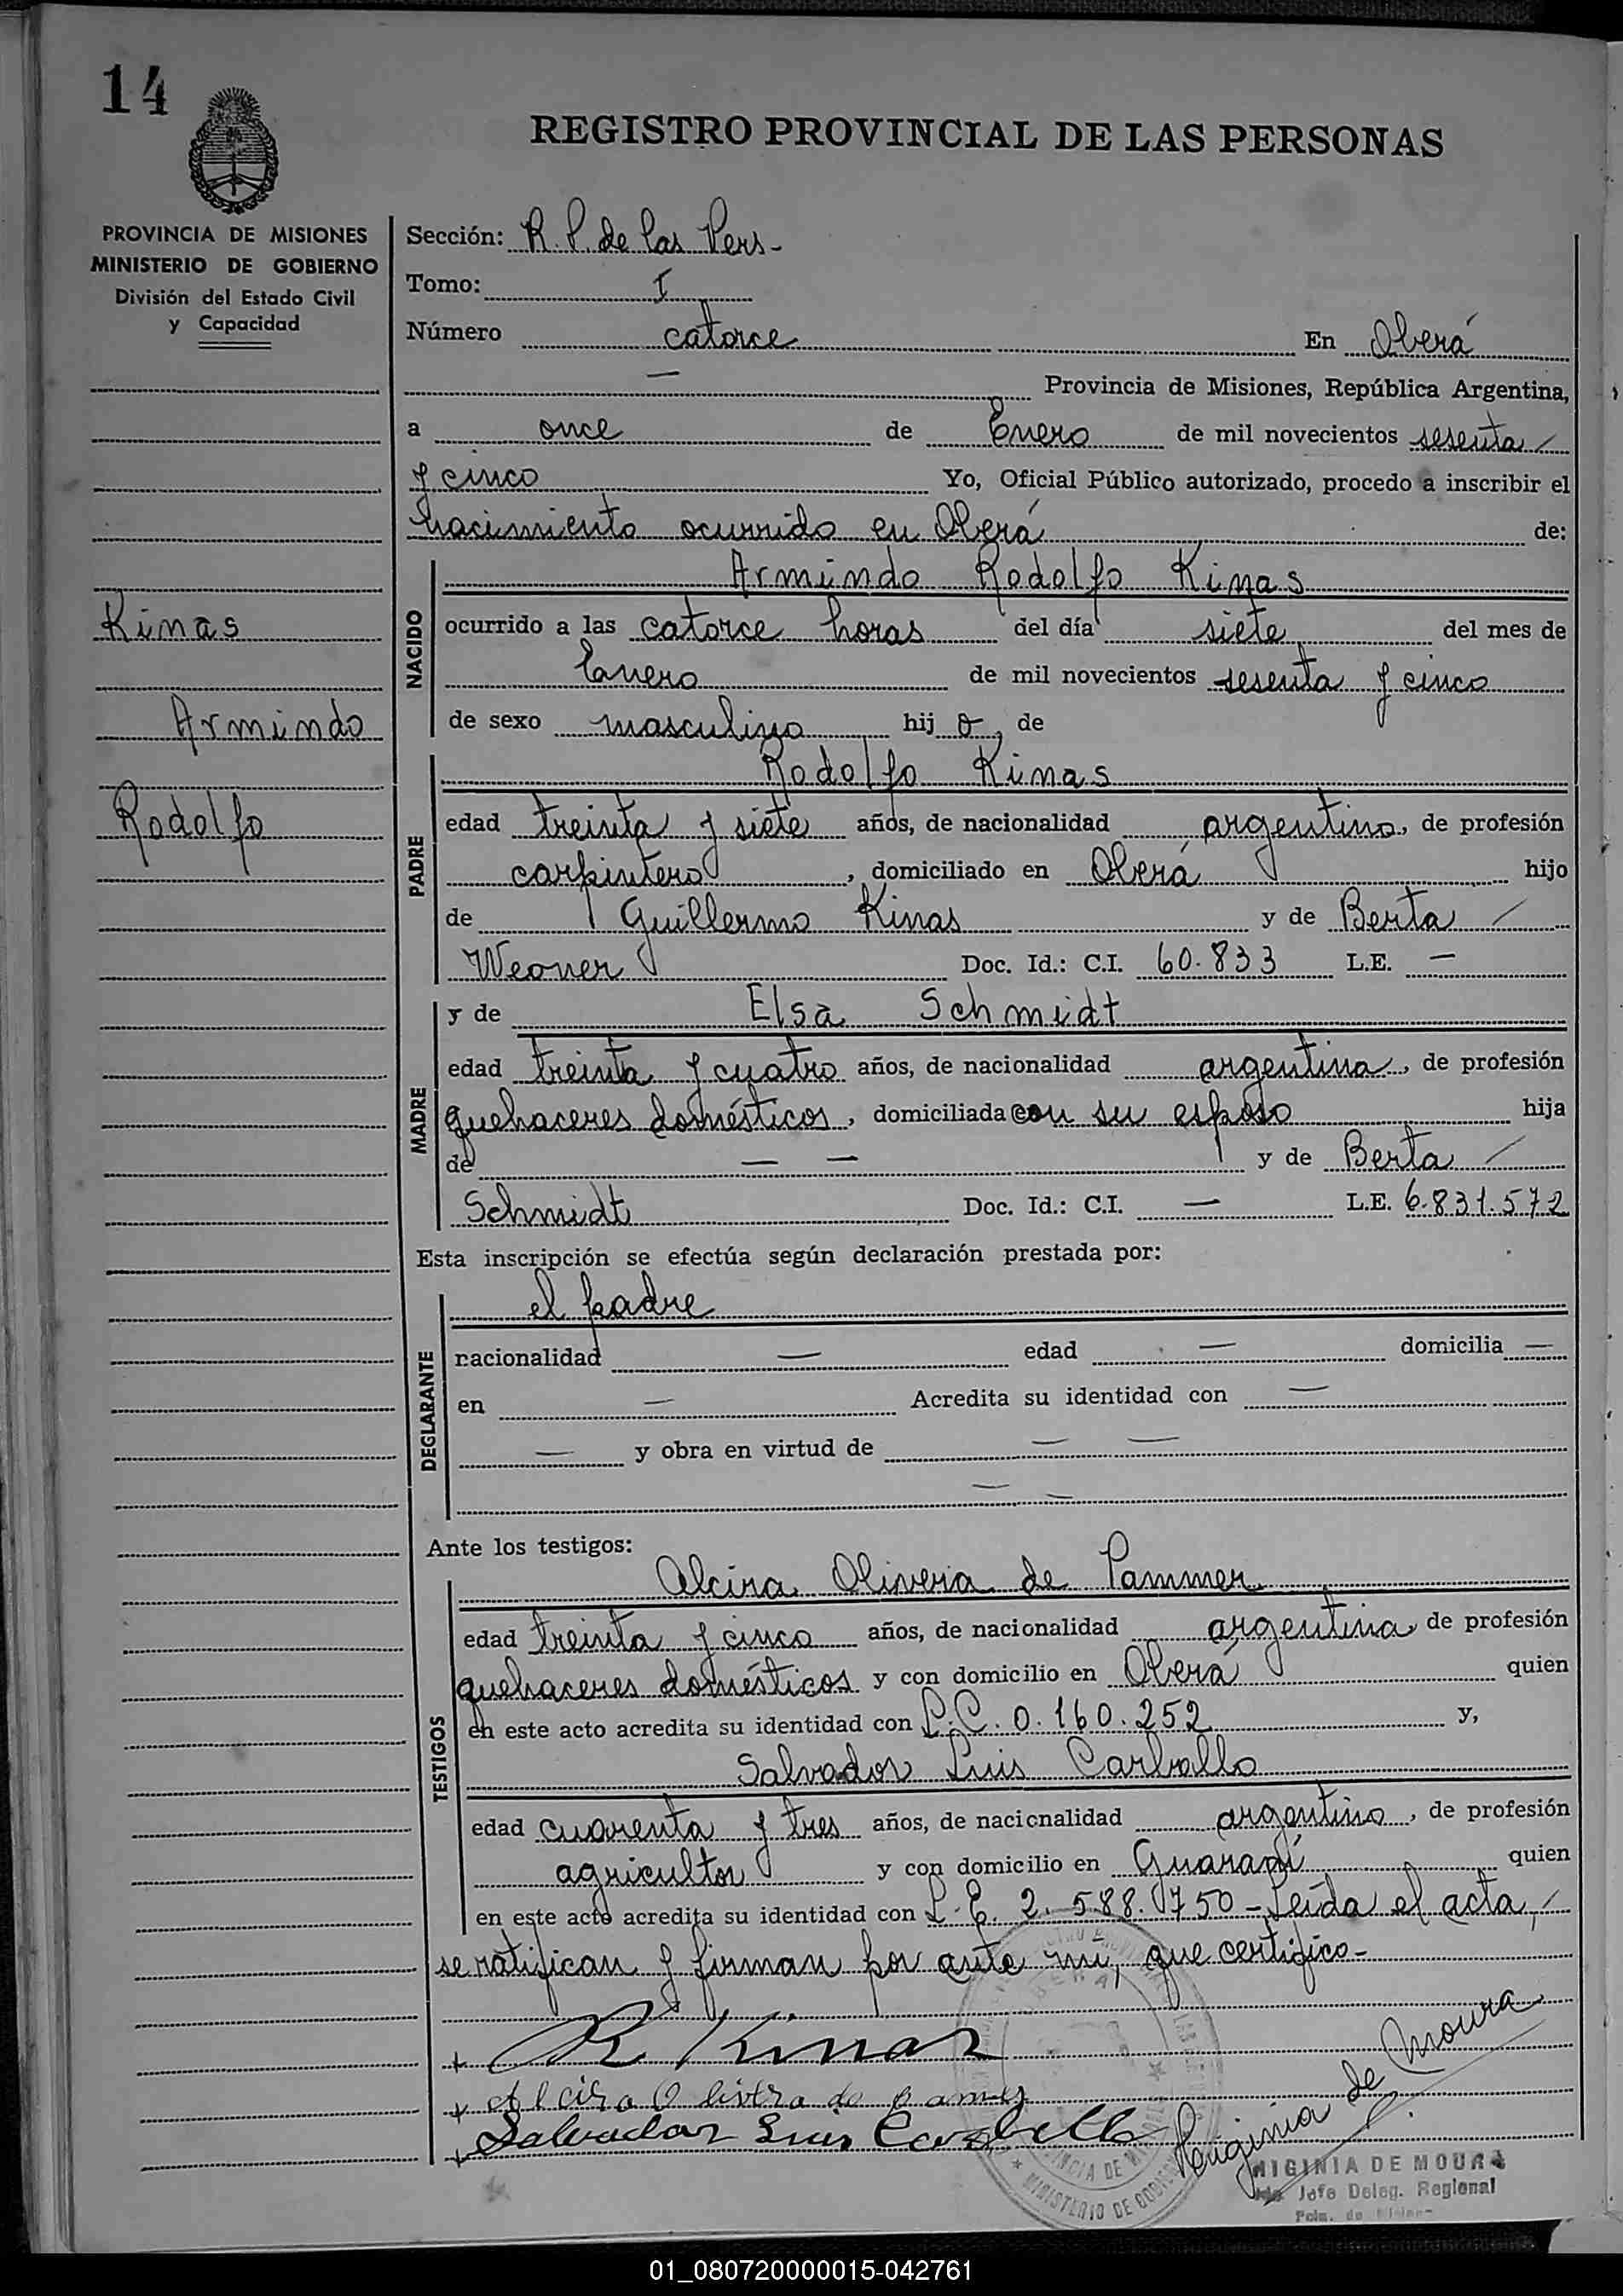 14
REGISTRO PROVINCIAL DE LAS PERSONAS
PROVINCIA DE MISIONES
MINISTERIO DE GOBIERNO
División del Estado Civil
y Capacidad
Kinas
Armindo
Rodolfo
Sección: R. P. de las Pers -
Tomo: I
Número catorce En Oberá
— Provincia de Misiones, República Argentina,
a once de Enero de mil novecientos sesenta /
y cinco Yo, Oficial Público autorizado, procedo a inscribir el
nacimiento ocurrido en Oberá de:
NACIDO
Armindo Rodolfo Kinas
ocurrido a las catorce horas del día siete del mes de
Enero de mil novecientos sesenta y cinco
de sexo masculino hij o, de
PADRE
Rodolfo Kinas
edad treinta y siete años, de nacionalidad argentino, de profesión
carpintero, domiciliado en Oberá hijo
de Guillermo Kinas y de Berta /
Weoner Doc. Id.: C.I. 60.833 L.E. —
MADRE
y de Elsa Schmidt
edad treinta y cuatro años, de nacionalidad argentina, de profesión
quehaceres domésticos, domiciliada con su esposo hija
de — — y de Berta /
Schmidt Doc. Id.: C.I. — L.E. 6.831.572
Esta inscripción se efectúa según declaración prestada por:
DECLARANTE
el padre
nacionalidad — edad — domicilia —
en — Acredita su identidad con —
— y obra en virtud de — —
— —
Ante los testigos:
TESTIGOS
Alcira Olivera de Pammer
edad treinta y cinco años, de nacionalidad argentina de profesión
quehaceres domésticos y con domicilio en Oberá quien
en este acto acredita su identidad con L.C. 0.160.252 y,
Salvador Luis Carballo
edad cuarenta y tres años, de nacionalidad argentino, de profesión
agricultor y con domicilio en Guaraní quien
en este acto acredita su identidad con L.E. 2.588.750 - Leída el acta, /
se ratifican y firman por ante mí, que certifico -
+ R Kinas
+ Alcira Olivera de
+ Salvador Luis Carballo
Higinia de Moura
HIGINIA DE MOURA
Jefe Deleg. Regional
OBERA
MINISTERIO DE GOBIERNO
01_080720000015-042761